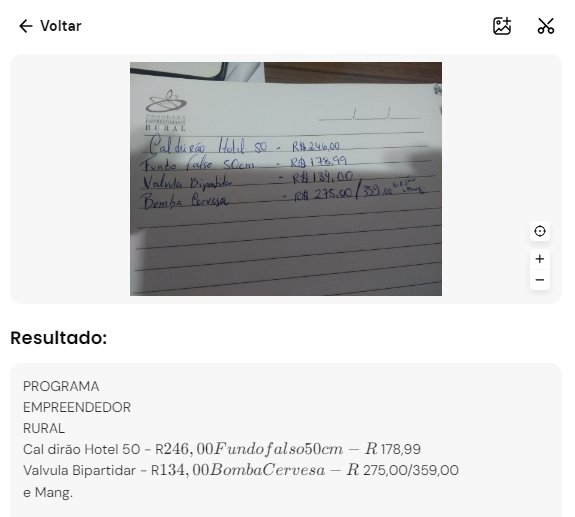 Voltar
PROGRAMA
EMPREENDEDOR
RURAL
Caldeirão Hotel 50 - R$ 246,00
Fundo falso 50cm - R$ 178,99
Valvula Bipartida - R$ 134,00
Bomba Cervesa - R$ 275,00/359,00
+
−
Resultado:
PROGRAMA
EMPREENDEDOR
RURAL
Cal dirão Hotel 50 - R246,00Fundofalso50cm - R 178,99
Valvula Bipartidar - R134,00BombaCervesa - R 275,00/359,00
e Mang.